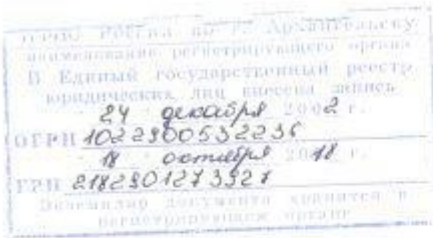 ИФНС России по г. Архангельску
наименование регистрирующего органа
В Единый государственный реестр
юридических лиц внесена запись
24 декабря 2002 г.
ОГРН 1022900532236
18 октября 2018 г.
ГРН 2182901273927
Экземпляр документа хранится в
регистрирующем органе